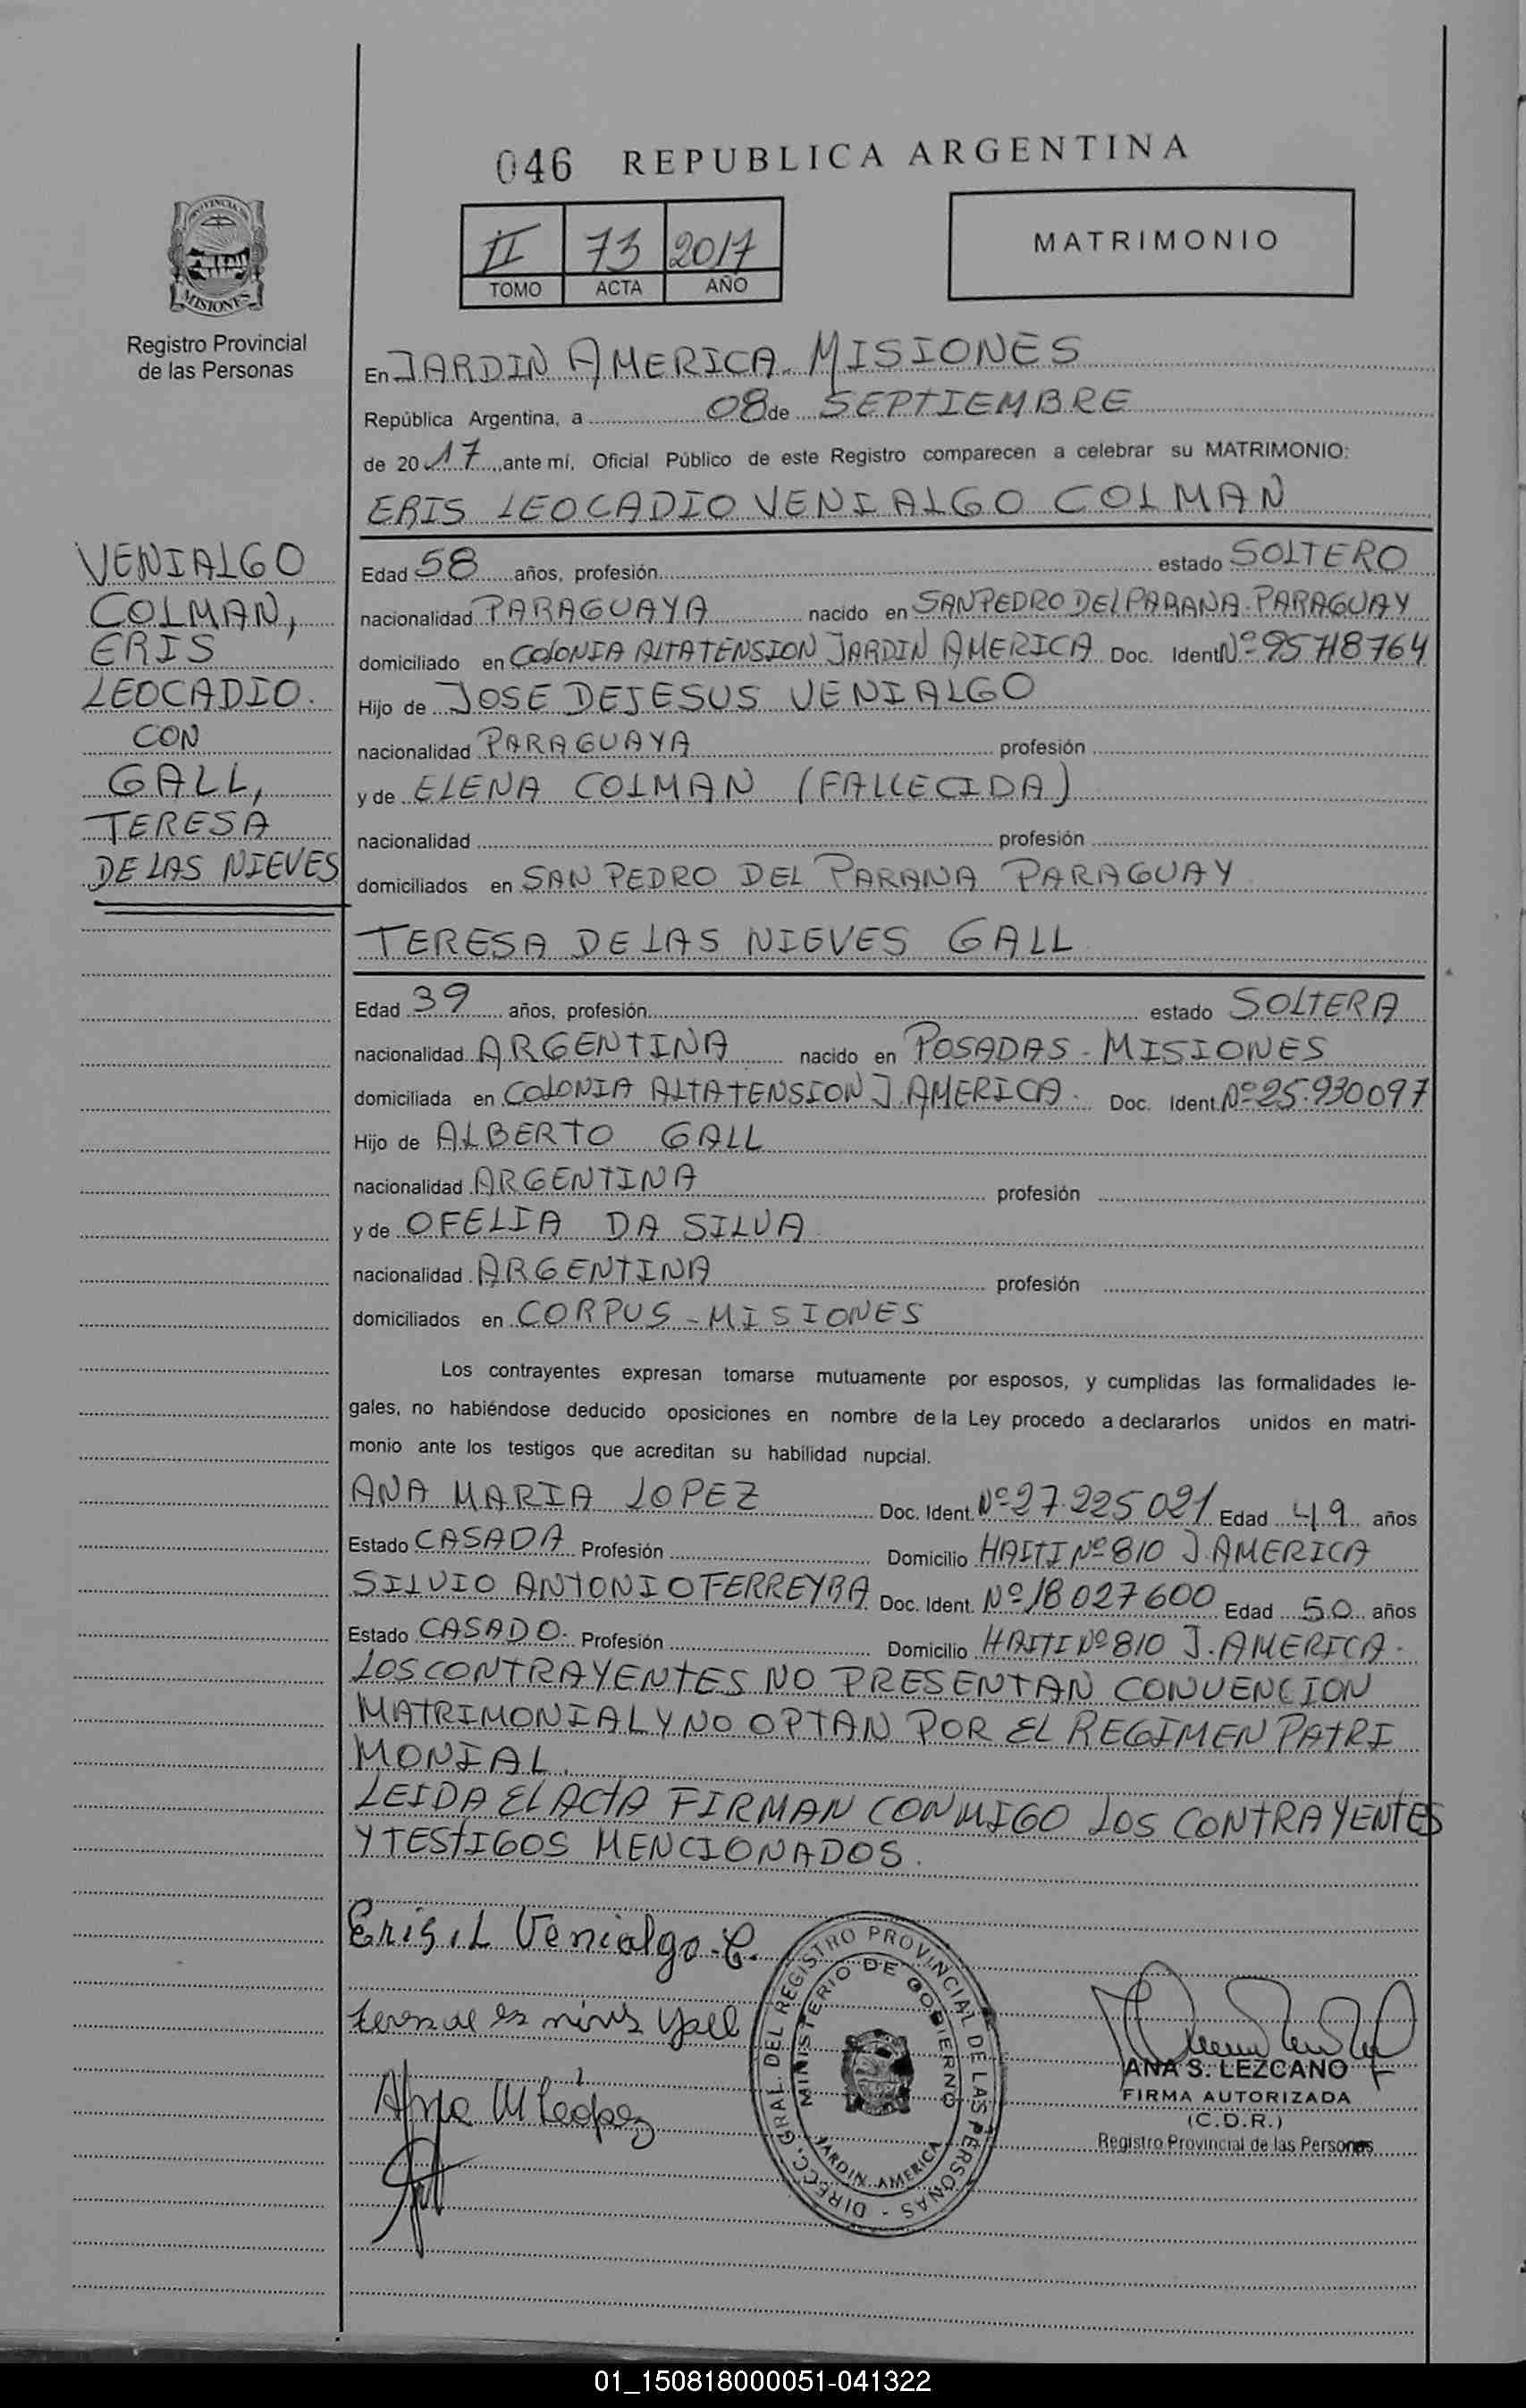 046 REPUBLICA ARGENTINA
II 73 2017
TOMO ACTA AÑO
MATRIMONIO
PROVINCIA DE
MISIONES
Registro Provincial
de las Personas
En JARDIN AMERICA. MISIONES
República Argentina, a 08 de SEPTIEMBRE
de 2017, ante mí, Oficial Público de este Registro comparecen a celebrar su MATRIMONIO:
ERIS LEOCADIO VENIALGO COLMAN
VENIALGO
COLMAN,
ERIS
LEOCADIO.
CON
GALL,
TERESA
DE LAS NIEVES
Edad 58 años, profesión estado SOLTERO
nacionalidad PARAGUAYA nacido en SAN PEDRO DEL PARANA. PARAGUAY
domiciliado en COLONIA ALTA TENSION JARDIN AMERICA Doc. Ident Nº 95718764
Hijo de JOSE DE JESUS VENIALGO
nacionalidad PARAGUAYA profesión
y de ELENA COLMAN (FALLECIDA)
nacionalidad profesión
domiciliados en SAN PEDRO DEL PARANA PARAGUAY
TERESA DE LAS NIEVES GALL
Edad 39 años, profesión estado SOLTERA
nacionalidad ARGENTINA nacido en POSADAS - MISIONES
domiciliada en COLONIA ALTA TENSION J. AMERICA. Doc. Ident. Nº 25.930097
Hijo de ALBERTO GALL
nacionalidad ARGENTINA profesión
y de OFELIA DA SILVA
nacionalidad ARGENTINA profesión
domiciliados en CORPUS - MISIONES
Los contrayentes expresan tomarse mutuamente por esposos, y cumplidas las formalidades le-
gales, no habiéndose deducido oposiciones en nombre de la Ley procedo a declararlos unidos en matri-
monio ante los testigos que acreditan su habilidad nupcial.
ANA MARIA LOPEZ Doc. Ident. Nº 27.225021 Edad 49 años
Estado CASADA Profesión Domicilio HAITI Nº 810 J. AMERICA
SILVIO ANTONIO FERREYRA Doc. Ident. Nº 18027600 Edad 50 años
Estado CASADO. Profesión Domicilio HAITI Nº 810 J. AMERICA.
LOS CONTRAYENTES NO PRESENTAN CONVENCION
MATRIMONIAL Y NO OPTAN POR EL REGIMEN PATRI
MONIAL.
LEIDA EL ACTA FIRMAN CONMIGO LOS CONTRAYENTES
Y TESTIGOS MENCIONADOS.
Eris L Venialgo. C.
Ana M López
DIRECC. GRAL. DEL REGISTRO PROVINCIAL DE LAS PERSONAS -
MINISTERIO DE GOBIERNO
JARDIN AMERICA
ANA S. LEZCANO
FIRMA AUTORIZADA
(C.D.R.)
Registro Provincial de las Personas
01_150818000051-041322